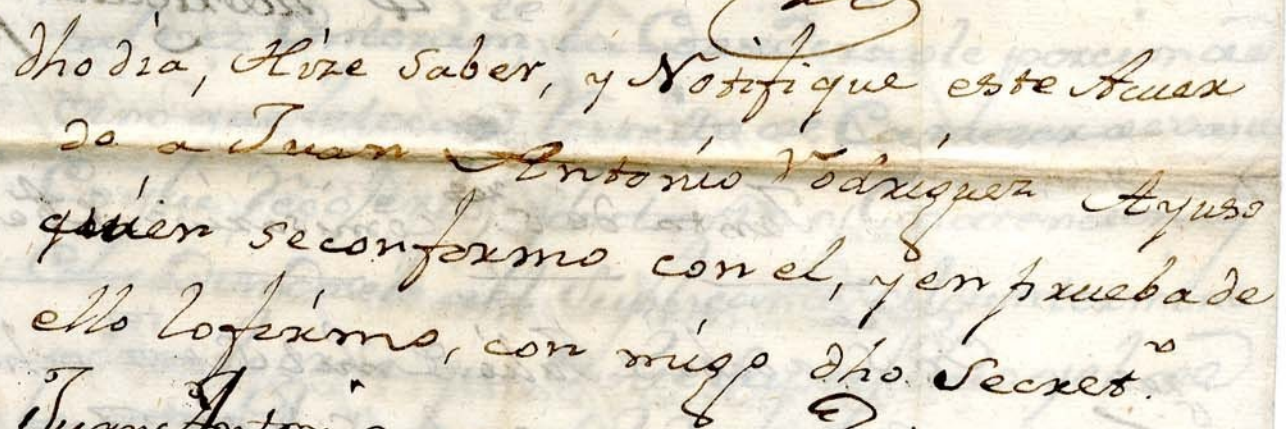 dho dia, Hize saber, y Notifique este Acuer
do a Juan Antonio Rodriguez Ayuso
quien se conformo con el, y en prueba de
ello lo firmo, con migo dho Secret.º
Juan Antoni